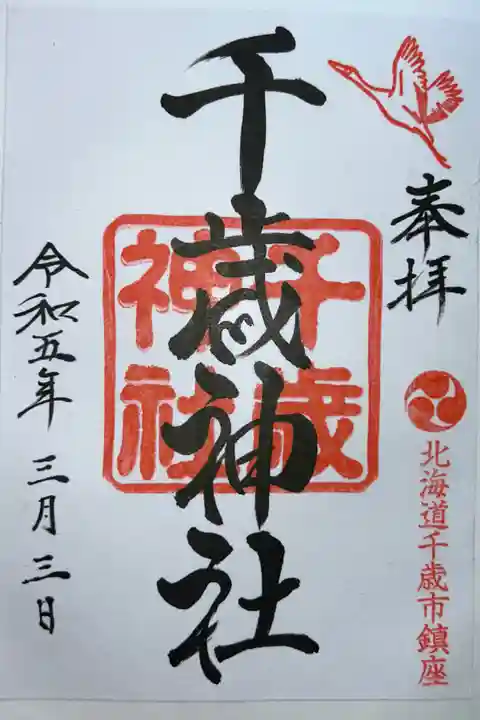 奉拝
北海道千歳市鎮座
千歳神社
千歳
神社
令和五年 三月三日